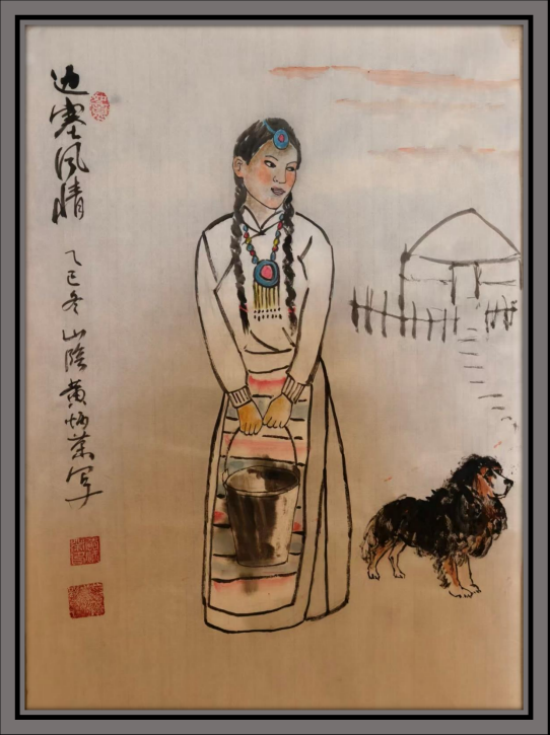 边塞风情
乙巳冬山阴黄炳荣写